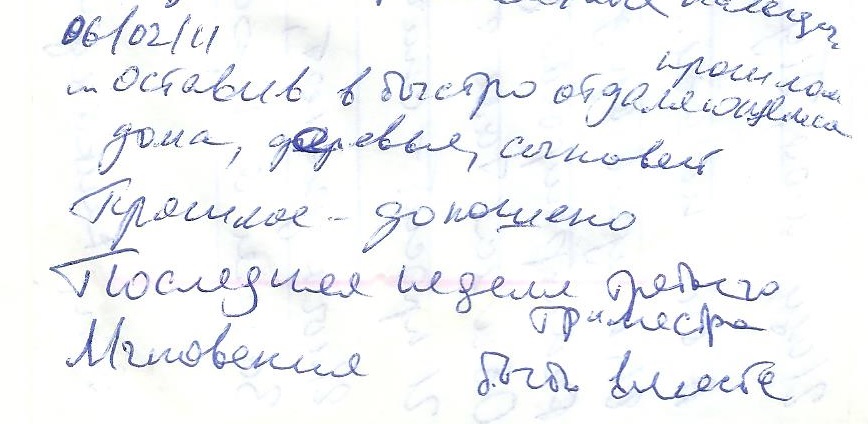 06/02/11
... оставив в быстро отдаляющемся прошлом
дома, деревья, сыновей
Прошлое - доношено
Последняя неделя третьего
триместра
Мгновения быть вместе